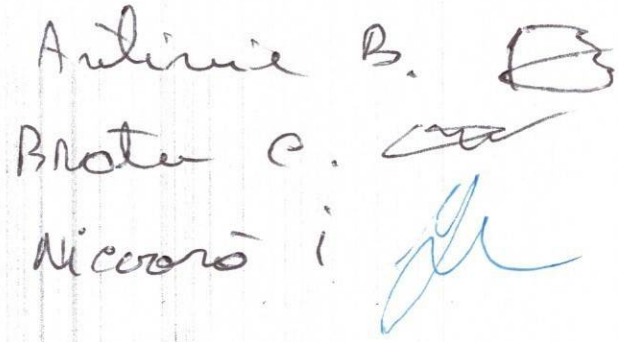 Antimie B.
Bratu C.
Nicoară i